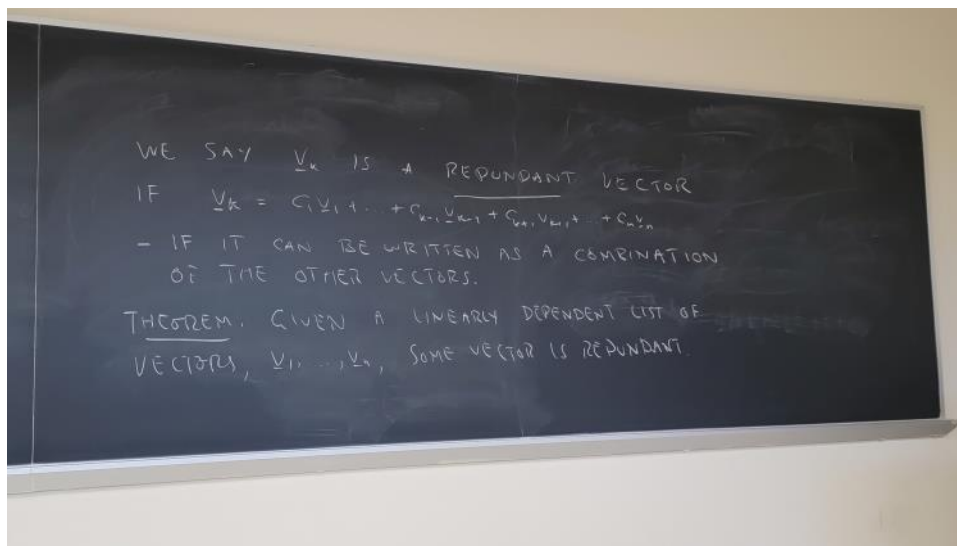 WE SAY V̲ₖ IS A REDUNDANT VECTOR
IF V̲ₖ = C₁V̲₁ + ... + Cₖ₋₁V̲ₖ₋₁ + Cₖ₊₁Vₖ₊₁ + ... + CₙV̲ₙ
- IF IT CAN BE WRITTEN AS A COMBINATION
OF THE OTHER VECTORS.
THEOREM. GIVEN A LINEARLY DEPENDENT LIST OF
VECTORS, V̲₁, ..., V̲ₙ, SOME VECTOR IS REDUNDANT.